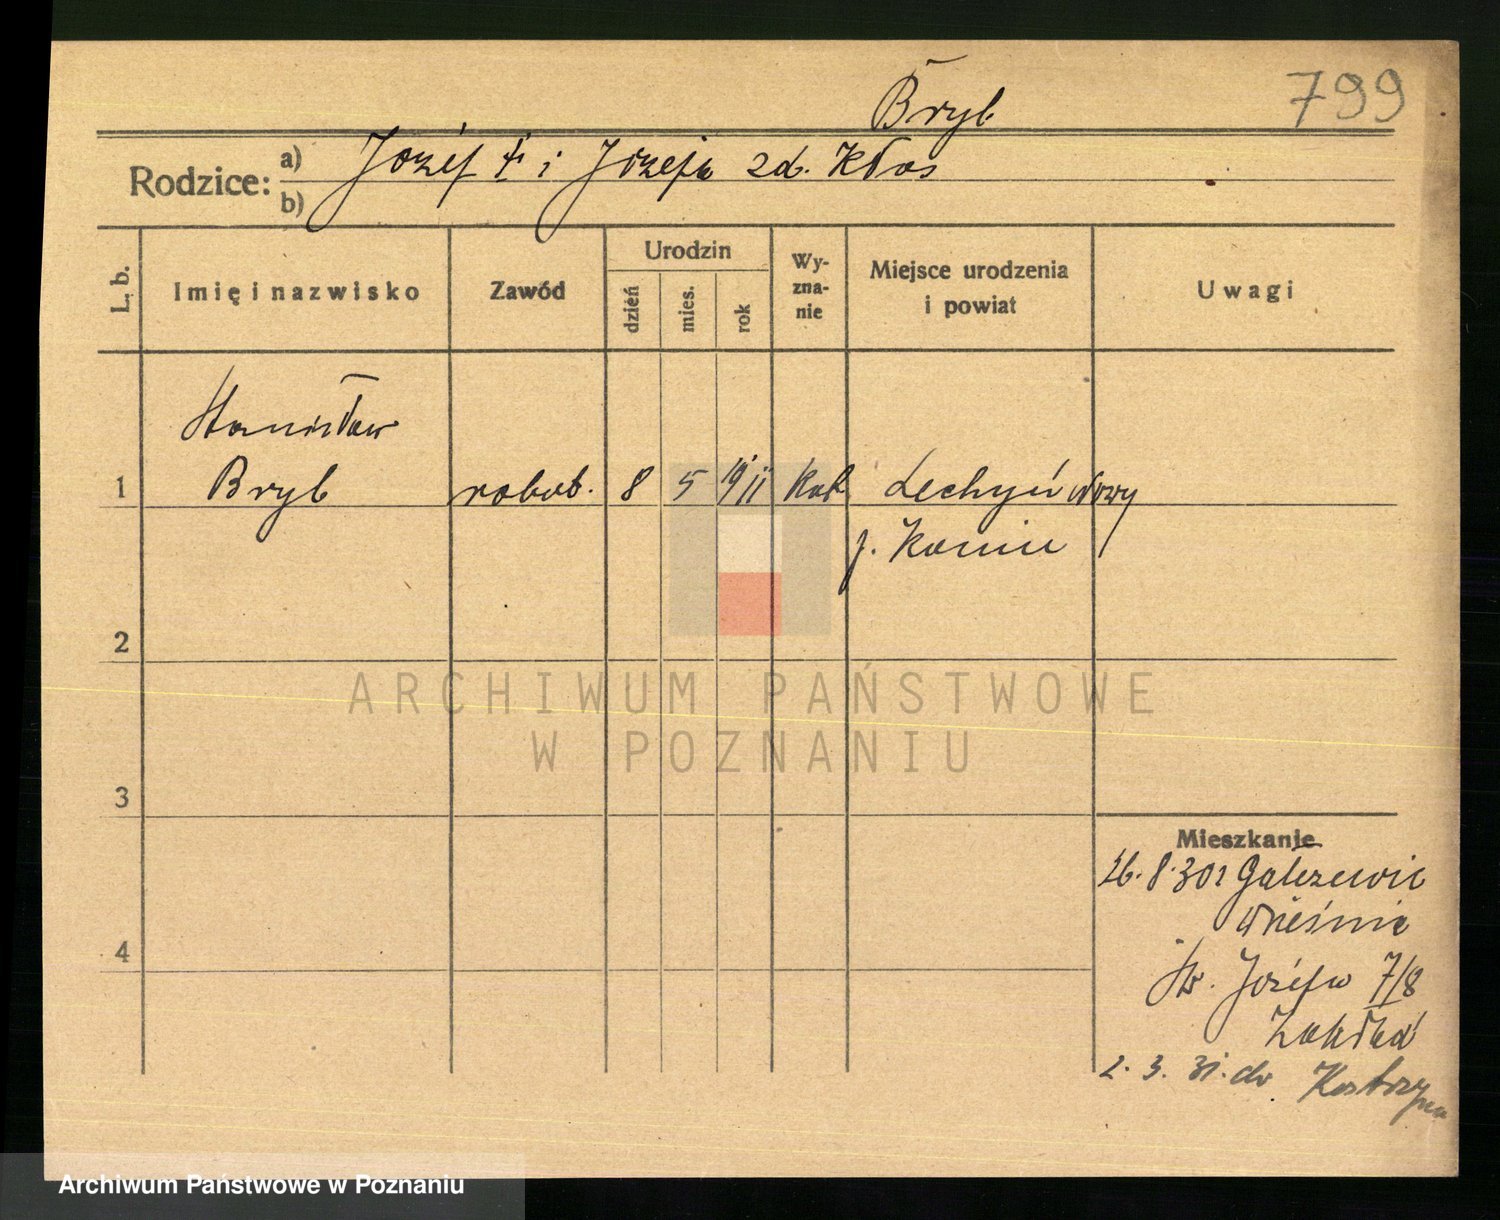 799
Bryl
Rodzice:
a) Józef † i Józefa zd. Kłos
b)
L. b.
Imię i nazwisko
Zawód
Urodzin
dzień
mies.
rok
Wy-
zna-
nie
Miejsce urodzenia
i powiat
Uwagi
Stanisław
1 Bryl robot. 8 5 1911 kat Lechyń nowy
p.
2
3
4
Mieszkanie
8.30
św. Józefa 7/8
Zakład
2. 3. 31. do Kostrzyna
ARCHIWUM PAŃSTWOWE
W POZNANIU
Archiwum Państwowe w Poznaniu